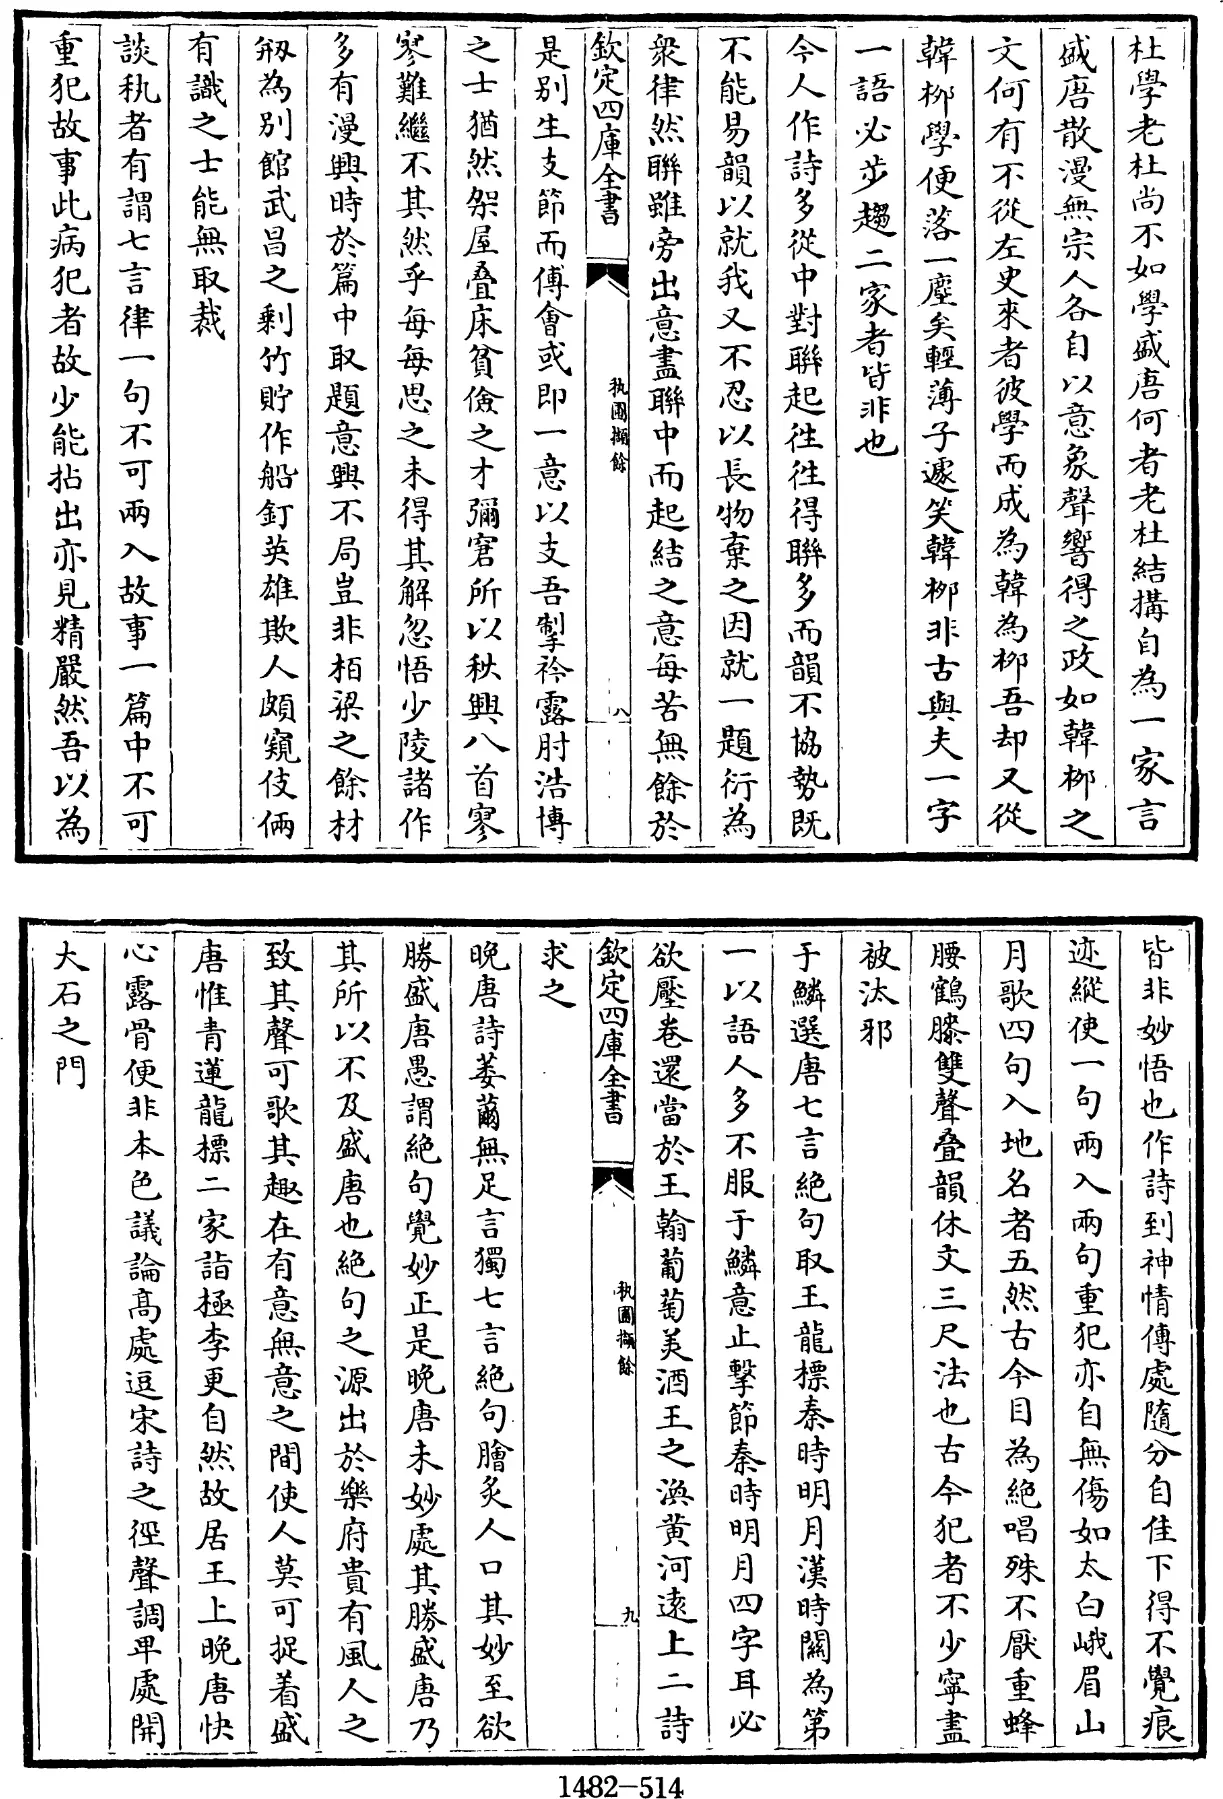 杜學老杜尚不如學盛唐何者老杜結搆自為一家言
盛唐散漫無宗人各自以意象聲響得之政如韓栁之
文何有不從左史來者彼學而成為韓為栁吾却又從
韓栁學便落一塵矣輕薄子遽笑韓栁非古與夫一字
一語必步趨二家者皆非也
今人作詩多從中對聯起往往得聯多而韻不協勢既
不能易韻以就我又不忍以長物棄之因就一題衍為
衆律然聯雖旁出意盡聯中而起結之意每苦無餘於
欽定四庫全書
執圃擷餘
八
是别生支節而傅會或即一意以支吾掣衿露肘浩博
之士猶然架屋叠床貧儉之才彌窘所以秋興八首寥
寥難繼不其然乎每每思之未得其解忽悟少陵諸作
多有漫興時於篇中取題意興不局豈非栢梁之餘材
剏為别館武昌之剩竹貯作船釘英雄欺人頗窺伎倆
有識之士能無取裁
談執者有謂七言律一句不可兩入故事一篇中不可
重犯故事此病犯者故少能拈出亦見精嚴然吾以為
皆非妙悟也作詩到神情傳處隨分自佳下得不覺痕
迹縱使一句兩入兩句重犯亦自無傷如太白峨眉山
月歌四句入地名者五然古今目為絶唱殊不厭重蜂
腰鶴膝雙聲叠韻休文三尺法也古今犯者不少寧盡
被汰邪
于鱗選唐七言絶句取王龍標秦時明月漢時關為第
一以語人多不服于鱗意止擊節秦時明月四字耳必
欲壓卷還當於王翰葡萄美酒王之渙黄河逺上二詩
欽定四庫全書
執圃擷餘
九
求之
晚唐詩萎薾無足言獨七言絶句膾炙人口其妙至欲
勝盛唐愚謂絶句覺妙正是晚唐未妙處其勝盛唐乃
其所以不及盛唐也絶句之源出於樂府貴有風人之
致其聲可歌其趣在有意無意之間使人莫可捉着盛
唐惟青蓮龍標二家詣極李更自然故居王上晚唐快
心露骨便非本色議論髙處逗宋詩之徑聲調卑處開
大石之門
1482-514